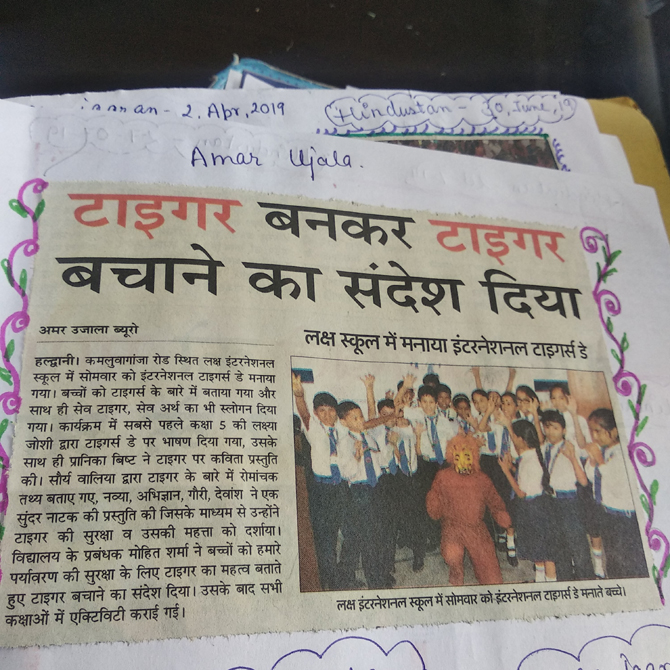 2, Apr, 2019
Hindustan - 30, June, 19
Amar Ujala.
टाइगर बनकर टाइगर
बचाने का संदेश दिया
अमर उजाला ब्यूरो
लक्ष स्कूल में मनाया इंटरनेशनल टाइगर्स डे
हल्द्वानी। कमलुवागांजा रोड स्थित लक्ष इंटरनेशनल
स्कूल में सोमवार को इंटरनेशनल टाइगर्स डे मनाया
गया। बच्चों को टाइगर्स के बारे में बताया गया और
साथ ही सेव टाइगर, सेव अर्थ का भी स्लोगन दिया
गया। कार्यक्रम में सबसे पहले कक्षा 5 की लक्ष्या
जोशी द्वारा टाइगर्स डे पर भाषण दिया गया, उसके
साथ ही प्रानिका बिष्ट ने टाइगर पर कविता प्रस्तुति
की। सौर्य वालिया द्वारा टाइगर के बारे में रोमांचक
तथ्य बताए गए, नव्या, अभिज्ञान, गौरी, देवांश ने एक
सुंदर नाटक की प्रस्तुति की जिसके माध्यम से उन्होंने
टाइगर की सुरक्षा व उसकी महत्ता को दर्शाया।
विद्यालय के प्रबंधक मोहित शर्मा ने बच्चों को हमारे
पर्यावरण की सुरक्षा के लिए टाइगर का महत्व बताते
हुए टाइगर बचाने का संदेश दिया। उसके बाद सभी
कक्षाओं में एक्टिविटी कराई गई।
लक्ष इंटरनेशनल स्कूल में सोमवार को इंटरनेशनल टाइगर्स डे मनाते बच्चे।